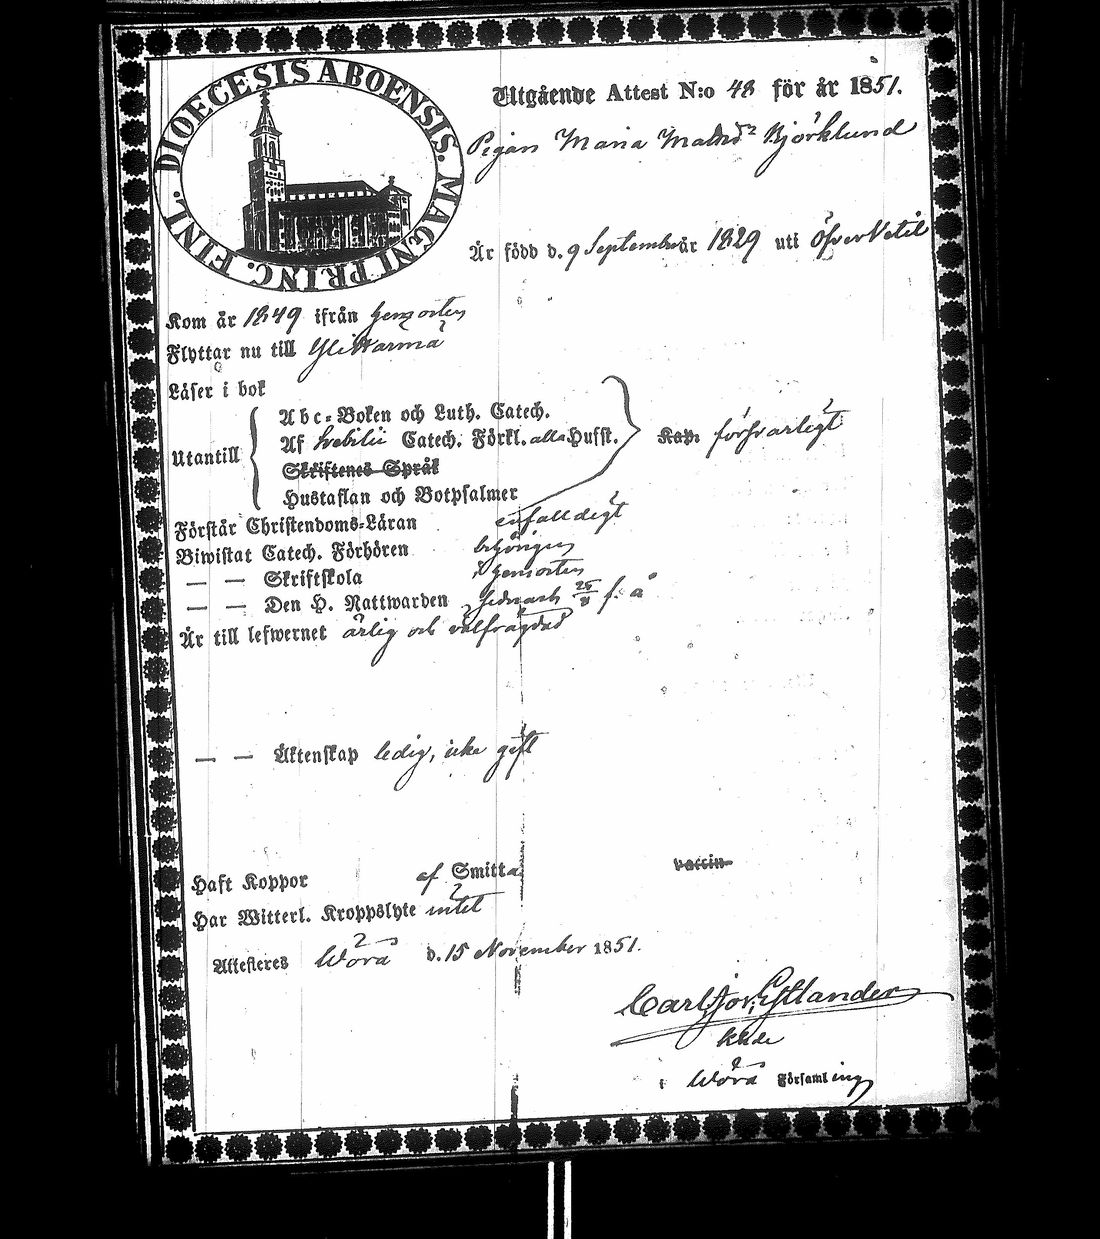 DIOECESIS ABOENSIS. MAGNI PRINC. FINL.
Utgående Attest N:o 48 för år 1851.
Pigan Maria Matsdr Björklund
Är född d. 9 September år 1829 uti Öfver Vetil
Kom år 1849 ifrån hemorten
Flyttar nu till Ylikarma
Läser i bok
Utantill
Abc-Boken och Luth. Catech.
Af Svebilii Catech. Förkl. alla Husst. Kap. försvarligt
Skriftenes Språk
Hustaflan och Botpsalmer
Förstår Christendoms-Läran enfalldigt
Biwistat Catech. Förhören
— — Skriftskola i hemorten
— — Den H. Nattwarden sednast 25/8 f. å
Är till lefwernet ärlig och välfrägdad
— — Äktenskap ledig, icke gift
Haft Koppor af Smitta vaccin
Har Witterl. Kroppslyte intet
Attesteres Wörå d. 15 November 1851.
Carl Estlander
i Wörå Församling